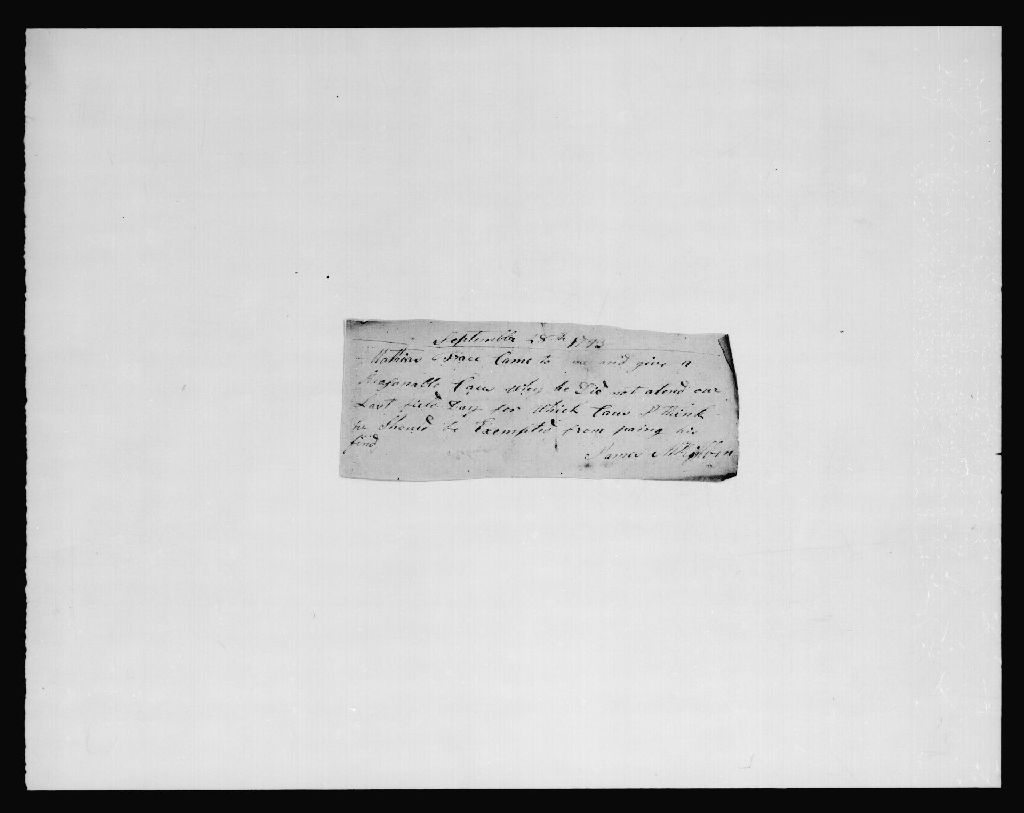 September 28th 1793
Came to me and give a
Reasonable Caus Why he Did not atend our
Last field Day for Which Caus I think
he Should be Exempted from paing his
find
James McKibbin